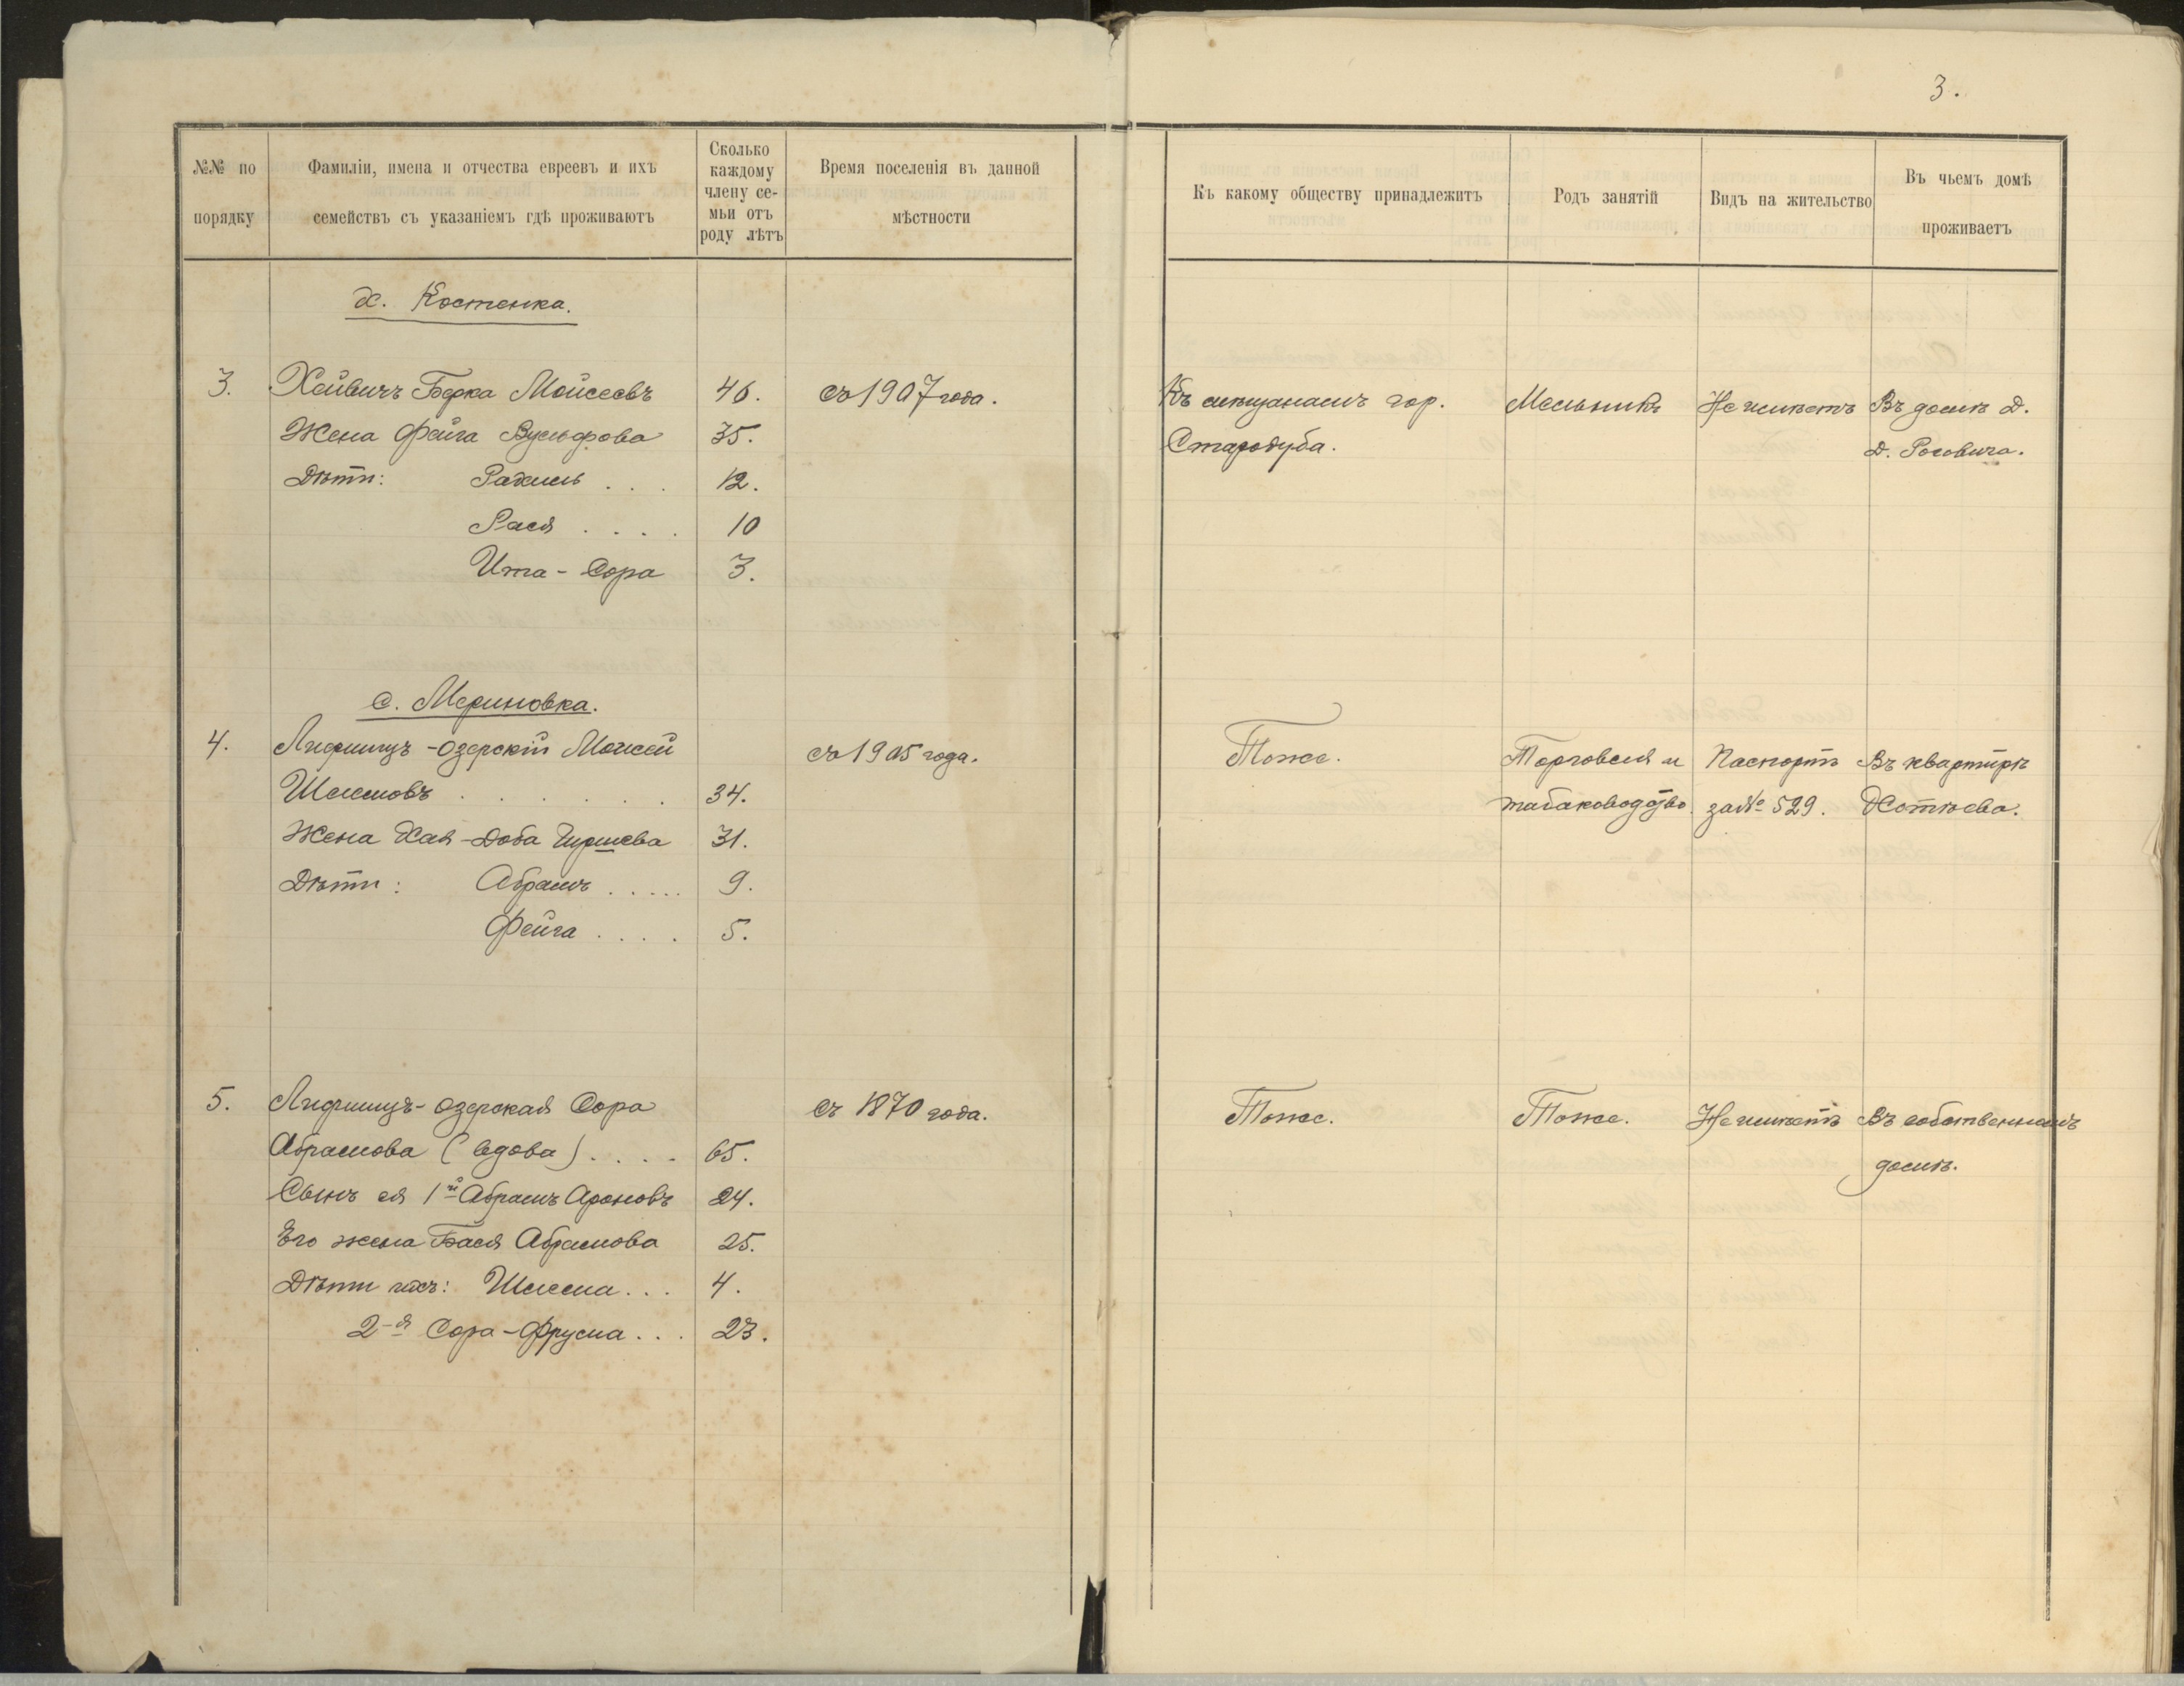 3.
№№ по порядку
Фамиліи, имена и отчества евреевъ и ихъ
семействъ съ указаніемъ гдѣ проживаютъ
Сколько
каждому
члену се-
мьи отъ
роду лѣтъ
Время поселенія въ данной
мѣстности
Къ какому обществу принадлежитъ
Родъ занятій
Видъ на жительство
Въ чьемъ домѣ
проживаетъ
х. Костенка.
3. Хейвичъ Берка Мойсеевъ 46. съ 1907 года. Къ мѣщанамъ гор. Мельникъ Не имѣетъ Въ домѣ Д.
Жена Фейга Вульфова 35. Стародуба. Д. Росовича.
Дѣти: Рахиль . . . 12.
Рася . . . . 10
Ита - Сора 3.
с. Мериновка.
4. Лифшицъ - Озерскій Моисей съ 1905 года. Тоже. Торговля и Паспортъ Въ квартирѣ
Шлемовъ . . . . . . 34. табаководство. за № 529. Хотѣева.
Жена Хая - Доба Гиршева 31.
Дѣти: Абрамъ . . . . . 9.
Фейга . . . . 5.
5. Лифшицъ - Озерская Сора съ 1870 года. Тоже. Тоже. Не имѣетъ Въ собственномъ
Абрамова (вдова) . . . . 65. домѣ.
Сынъ ея 1й Абрамъ Ароновъ 24.
Его жена Бася Абрамова 25.
Дѣти ихъ: Шлема . . . 4.
2-я Сора - Фрума . . . 23.